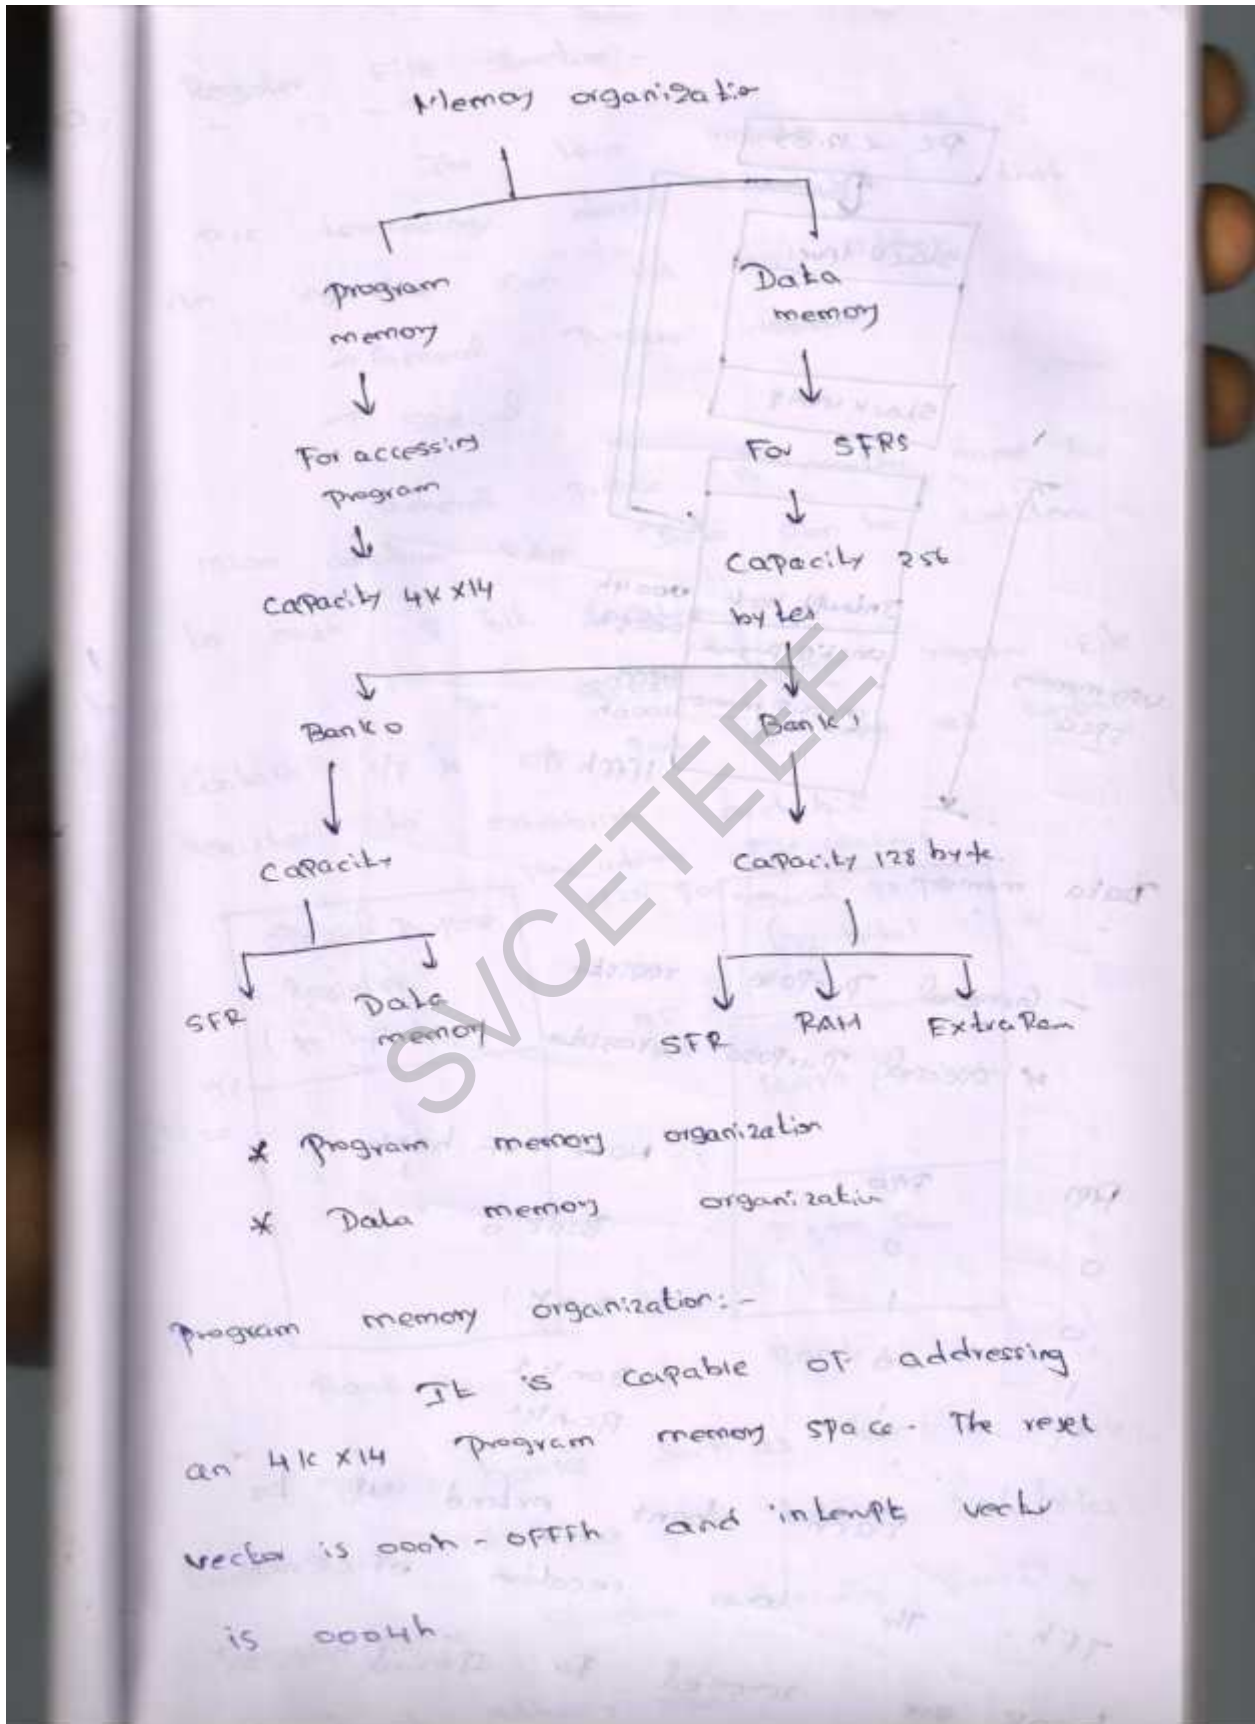 Memory organization
Program
memory
Data
memory
For accessing
program
For SFRs
Capacity 4K x14
Capacity 256
bytes
Bank 0
Bank 1
Capacity
Capacity 128 byte.
SFR
Data
memory
SFR
RAM
Extra Ram
SVCETEEE
* Program memory organization
* Data memory organization
Program memory organization:-
It is capable of addressing
an 4K x14 program memory space. The reset
vector is 000h - 0FFFh and interupt vector
is 0004h.